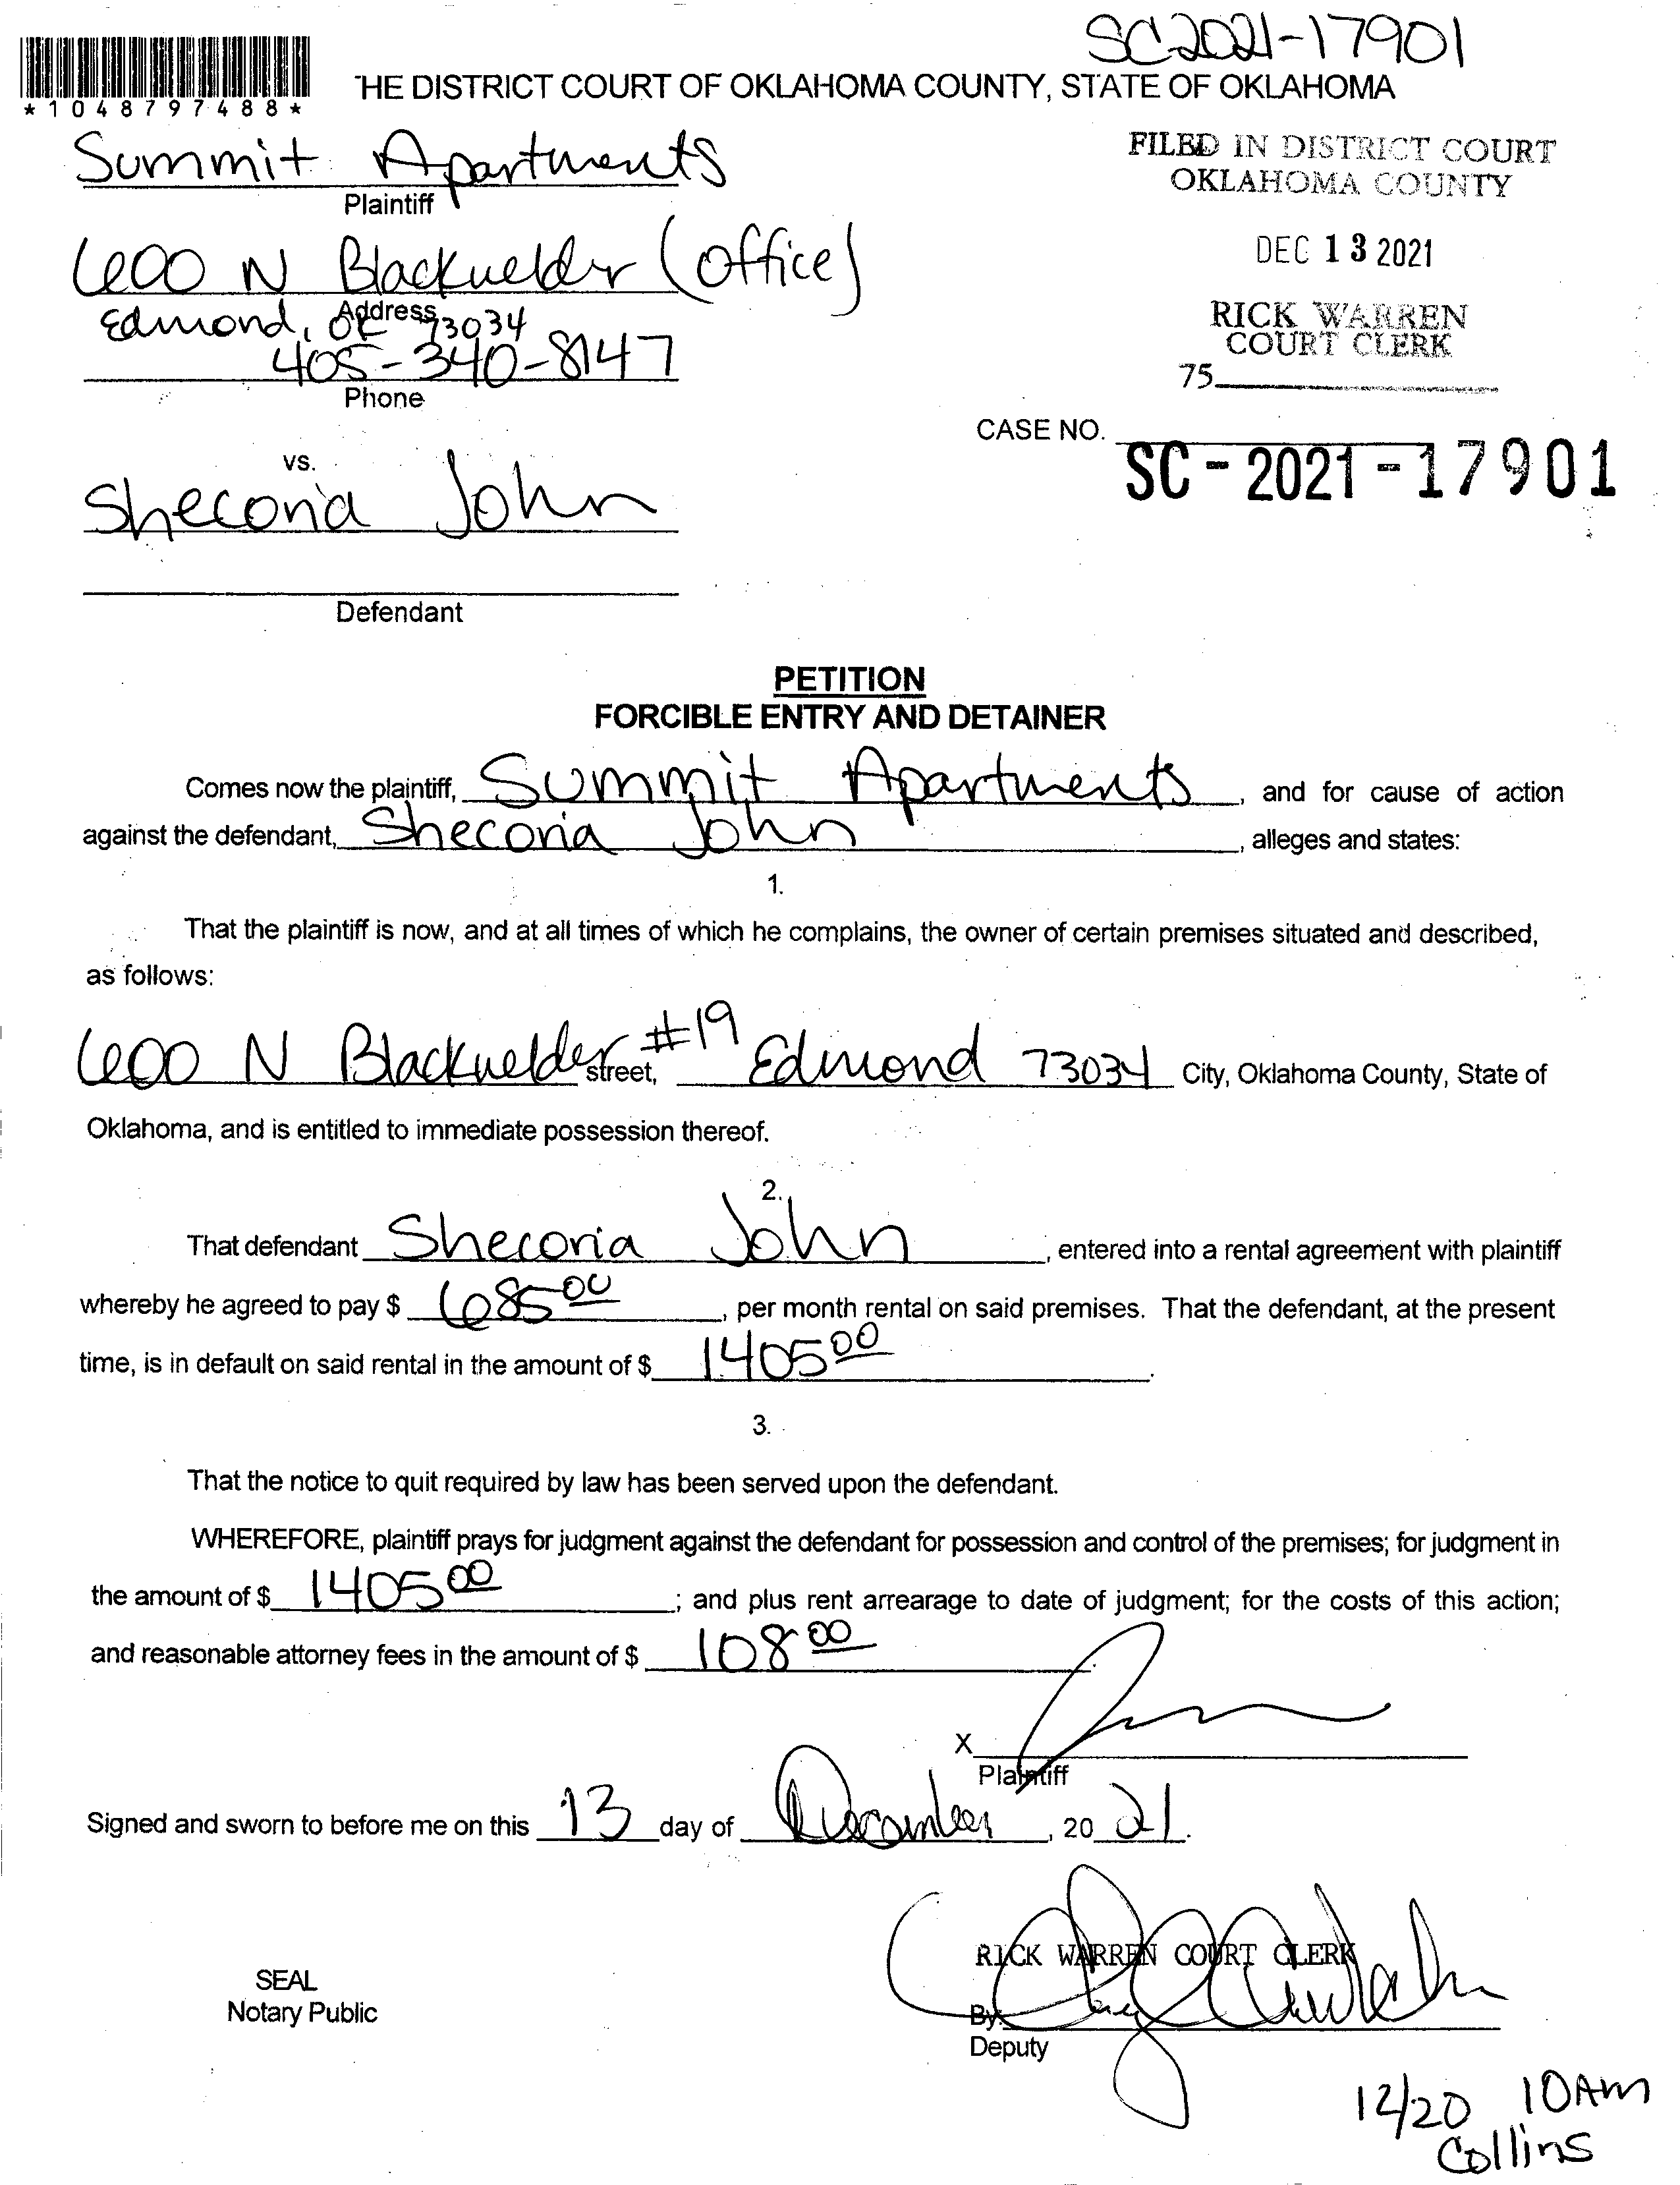 SC2021-17901
*1048797488*
THE DISTRICT COURT OF OKLAHOMA COUNTY, STATE OF OKLAHOMA
Summit Apartments
Plaintiff
FILED IN DISTRICT COURT
OKLAHOMA COUNTY
600 N Blackwelder (office)
Address
Edmond, OK 73034
DEC 13 2021
405-340-8147
Phone
RICK WARREN
COURT CLERK
75
CASE NO.
SC-2021-17901
vs.
Shecoria John
Defendant
PETITION
FORCIBLE ENTRY AND DETAINER
Comes now the plaintiff, Summit Apartments, and for cause of action
against the defendant, Shecoria John, alleges and states:
1.
That the plaintiff is now, and at all times of which he complains, the owner of certain premises situated and described,
as follows:
600 N Blackwelder street, #19 Edmond 73034 City, Oklahoma County, State of
Oklahoma, and is entitled to immediate possession thereof.
2.
That defendant Shecoria John, entered into a rental agreement with plaintiff
whereby he agreed to pay $ 685 00, per month rental on said premises. That the defendant, at the present
time, is in default on said rental in the amount of $ 1405 00.
3.
That the notice to quit required by law has been served upon the defendant.
WHEREFORE, plaintiff prays for judgment against the defendant for possession and control of the premises; for judgment in
the amount of $ 1405 00; and plus rent arrearage to date of judgment; for the costs of this action;
and reasonable attorney fees in the amount of $ 108 00.
X
Plaintiff
Signed and sworn to before me on this 13 day of December, 20 21.
RICK WARREN COURT CLERK
SEAL
Notary Public
By:
Deputy
12/20 10AM
Collins